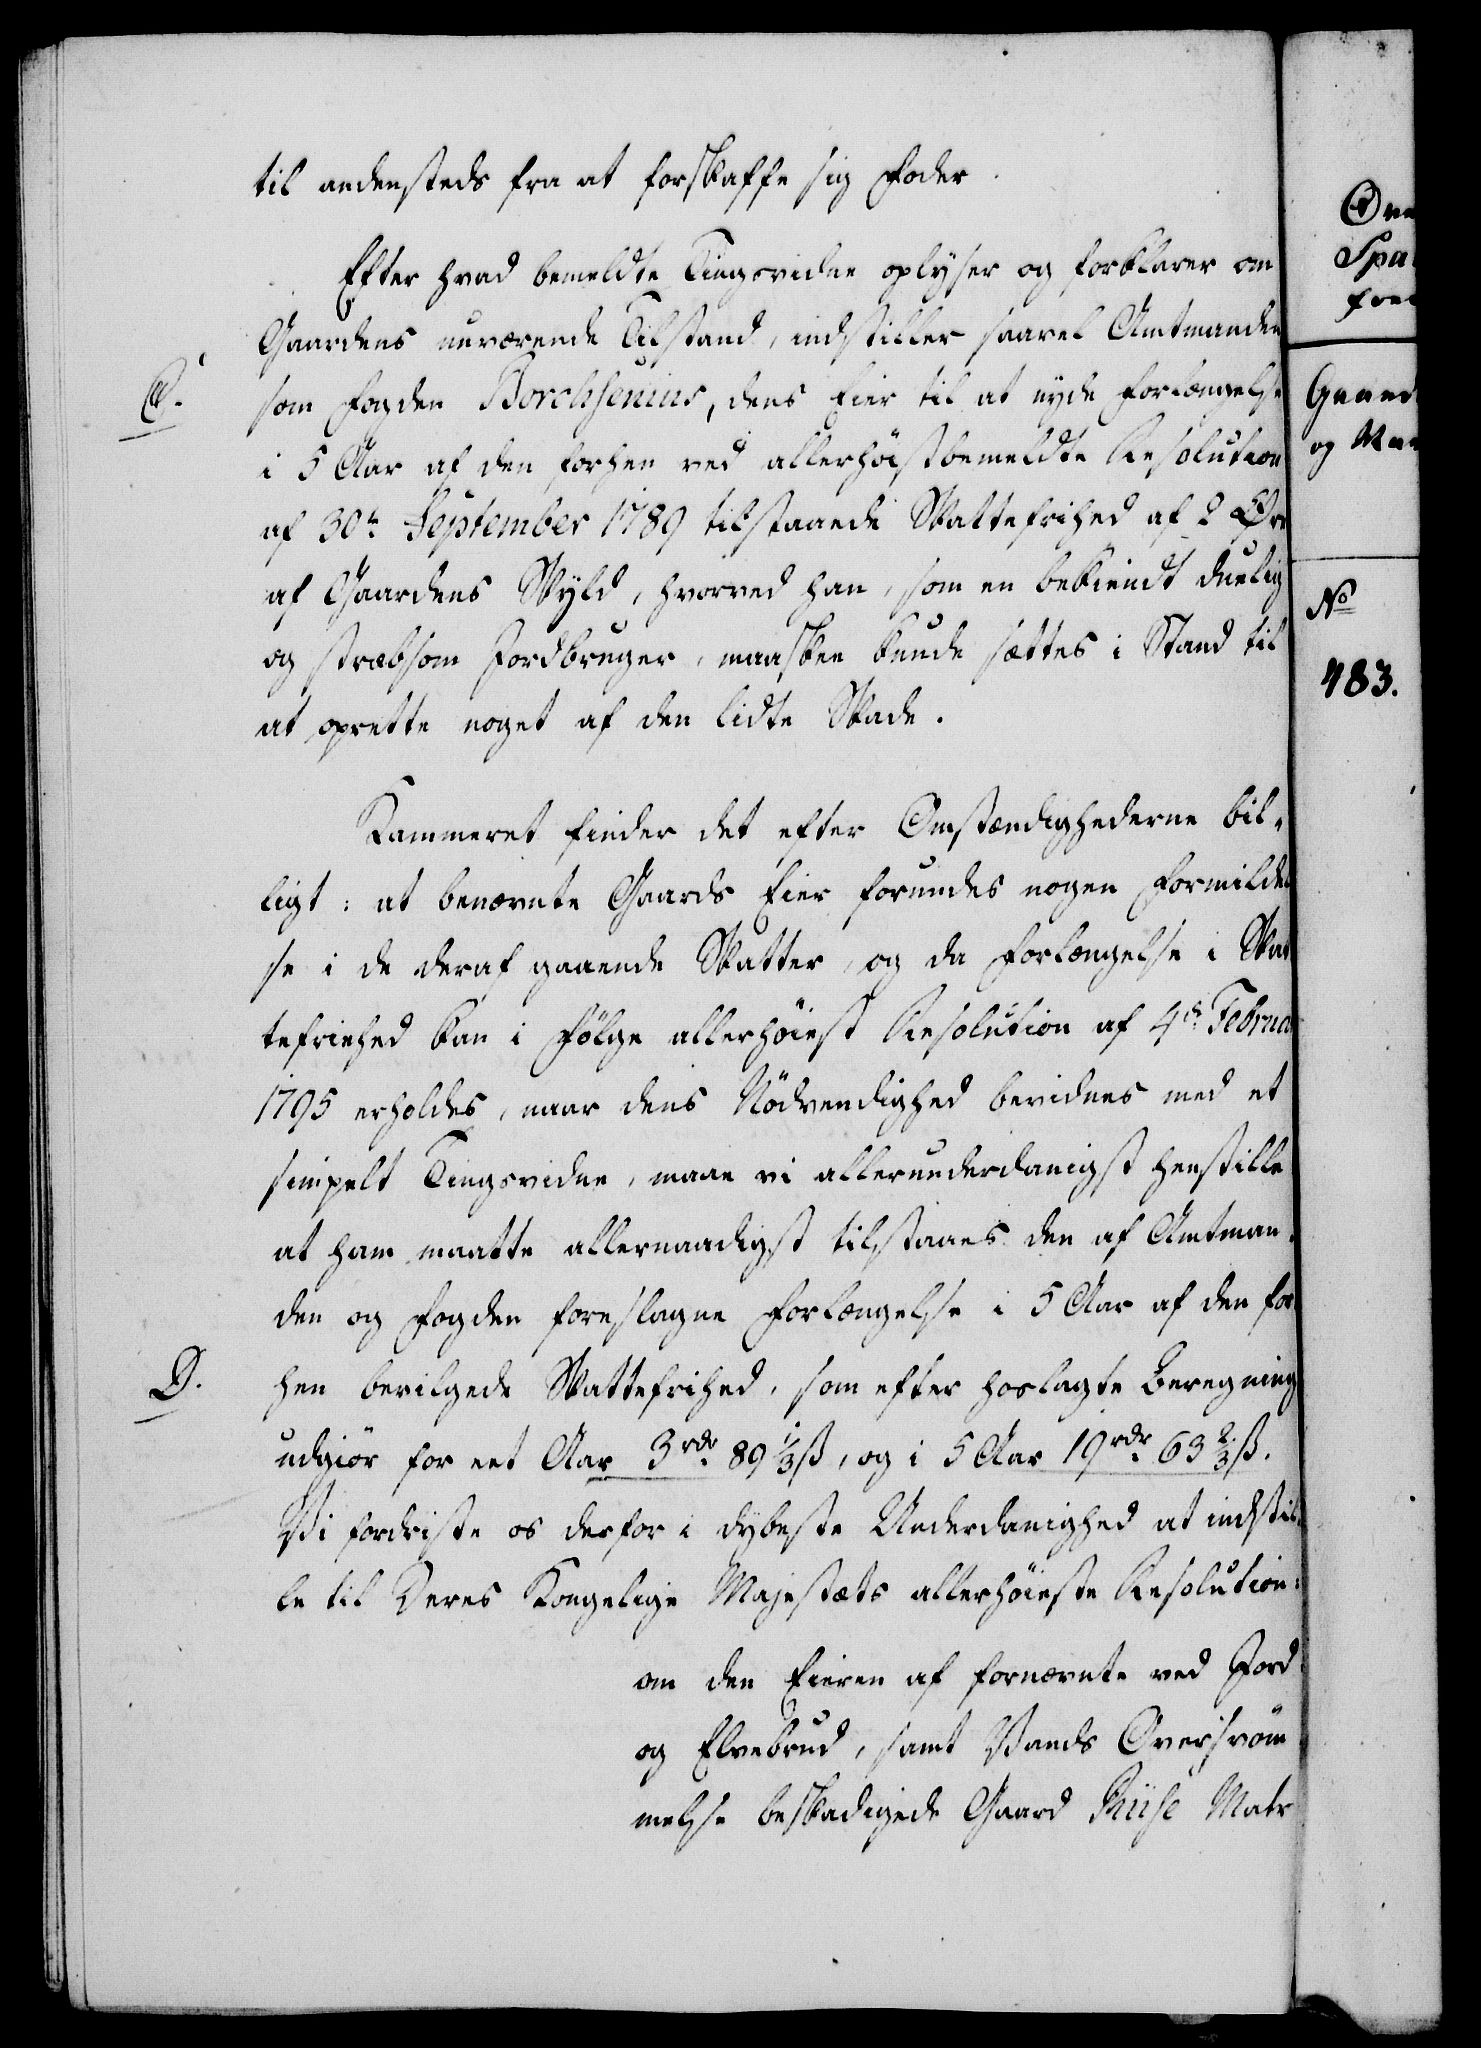 til andensteds fra at forskaffe sig Foder.
Efter hvad bemeldte Tingsvidne oplyser og forklarer om
Gaardens nuværende Tilstand, indstiller saavel Amtmanden
C.
som Fogden Borchsenius, dens Eier til at nyde Forlængelse
i 5 Aar af den forhen ved allerhøistbemeldte Resolution
af 30te September 1789 tilstaaede Skattefrihed af 2 Øre
af Gaardens Skyld, hvorved han, som en bekiendt duelig
og stræbsom Jordbruger, maaskee kunde sættes i Stand til
at oprette noget af den lidte Skade.
Kammeret finder det efter Omstændighederne bil-
ligt: at benævnte Gaards Eier forundes nogen Formildel
se i de deraf gaaende Skatter, og da Forlængelse i Skat
tefriehed kan i Følge allerhøiest Resolution af 4de Februa
1795 erholdes, naar dens Nödvendighed bevidnes med et
simpelt Tingsvidne, maae vi allerunderdanigst henstille
at ham maatte allernaadigst tilstaaes den af Amtman-
den og Fogden foreslagne Forlængelse i 5 Aar af den for
D.
hen bevilgede Skattefrihed, som efter hoslagte Beregning
udgiör for eet Aar 3 rdr. 89 1/3 ß, og i 5 Aar 19 rdr. 63 2/3 ß.
Vi fordriste os derfor i dybeste Underdanighed at indstil-
le til Deres Kongelige Majestæts allerhöieste Resolution:
om den Eieren af fornævnte ved Jord
og Elvebrud, samt Vands Oversvöm
melse beskadigede Gaard Riise Matr
Spa
Gaard
og
No
483.